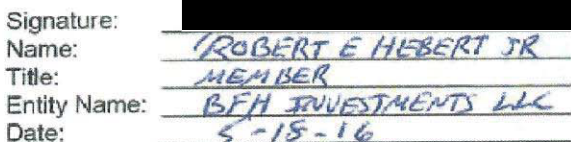 Signature:
Name: ROBERT E HEBERT JR
Title: MEMBER
Entity Name: BFH INVESTMENTS LLC
Date: 5-18-16